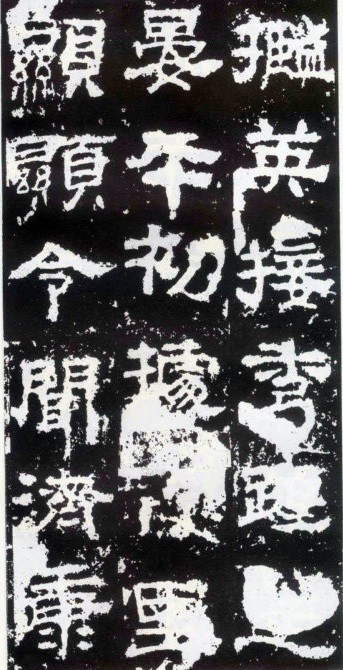 㩜英接秀踵
晏平初據
顯顯令聞濟康